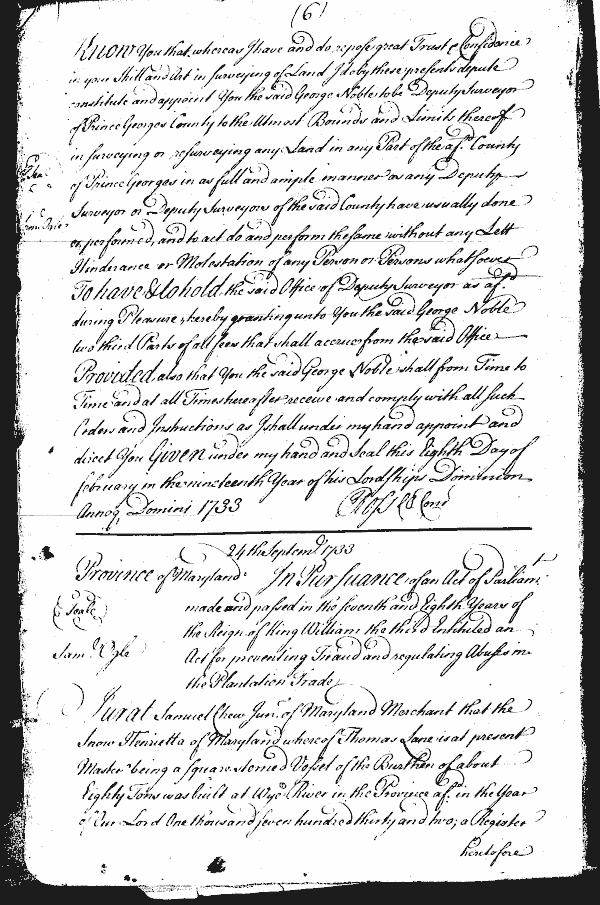 (6)
Know You that whereas I have and do repose great Trust & Confidence
in your Skill and Art in Surveying of Land I do by these presents depute
constitute and appoint You the said George Noble to be Deputy Surveyor
of Prince Georges County to the Utmost Bounds and Limits thereof
in surveying or resurveying any Land in any Part of the afd. County
of Prince Georges in as full and ample manner as any Deputy
Surveyor or Deputy Surveyors of the said County have usually done
or performed, and to act do and perform the same without any Lett
Hinderance or Molestation of any Person or Persons whatsoever
To have & to hold the said Office of Deputy Surveyor as afd.
during Pleasure, hereby granting unto You the said George Noble
two third Parts of all fees that shall accrue from the said Office
Provided also that You the said George Noble shall from Time to
Time and at all Times hereafter receive and comply with all such
Orders and Instructions as I shall under my hand appoint and
direct You Given under my hand and Seal this Eighth Day of
february in the nineteenth Year of his Lordships Dominion
Annoq. Domini 1733
24th Septemr. 1733
Province of Maryland In Pursuance of an Act of Parliamt.
(Seale) made and passed in the Seventh and Eighth Years of
the Reign of King William the third Entituled an
Sam. Ogle Act for preventing Frauds and regulating Abuses in
the Plantation Trade
Jurat Samuel Chew Junr. of Maryland Merchant that the
Snow Henrietta of Maryland whereof Thomas Lane is at present
Master being a Square stemed Vessel of the Burthen of about
Eighty Tons was built at Wye River in the Province afd. in the Year
of Our Lord One thousand seven hundred thirty and two, a Register
heretofore